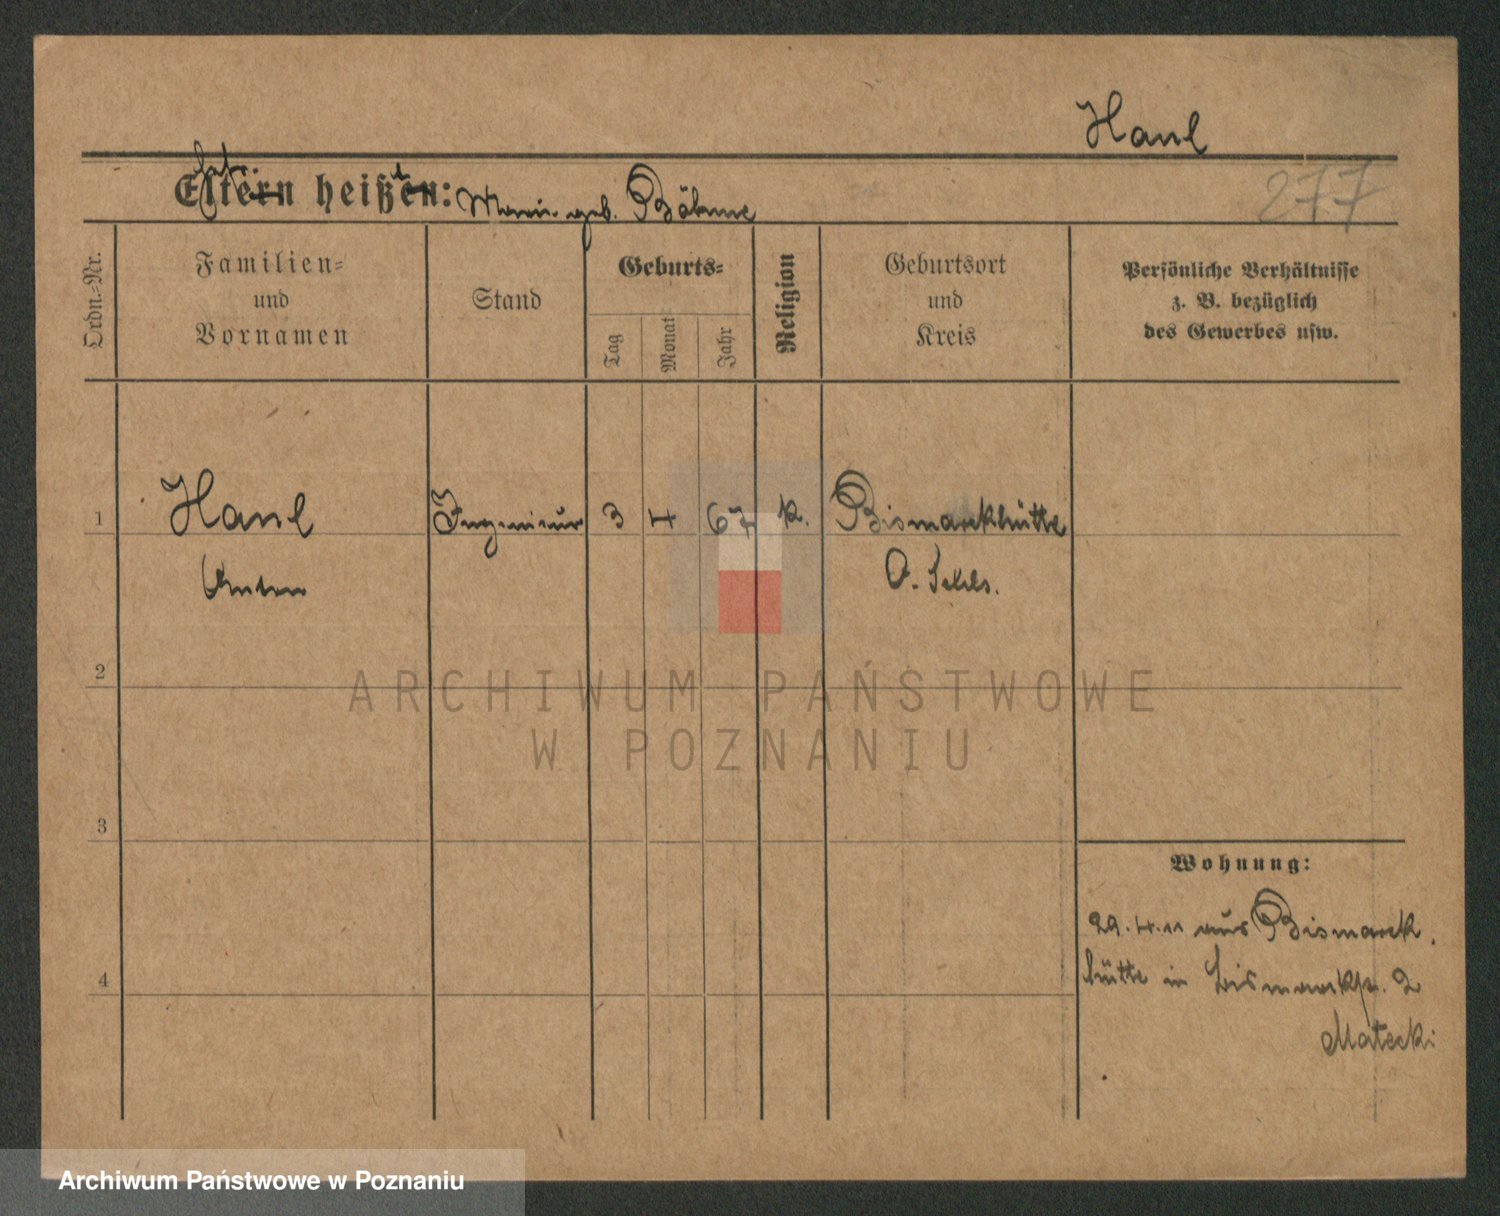 Hanl
Eltern heißen: Marie geb. Böhme
277
Ordn.-Nr.
Familien-
und
Vornamen
Stand
Geburts-
Tag
Monat
Jahr
Religion
Geburtsort
und
Kreis
Persönliche Verhältnisse
z. B. bezüglich
des Gewerbes usw.
1
Hanl
Anton
Ingenieur
3
4
67
k.
Bismarckhütte
O. Schles.
2
ARCHIWUM PAŃSTWOWE
W POZNANIU
3
Wohnung:
29.4.11 aus Bismarck
hütte in Bismarckstr. 2
Matecki
4
Archiwum Państwowe w Poznaniu